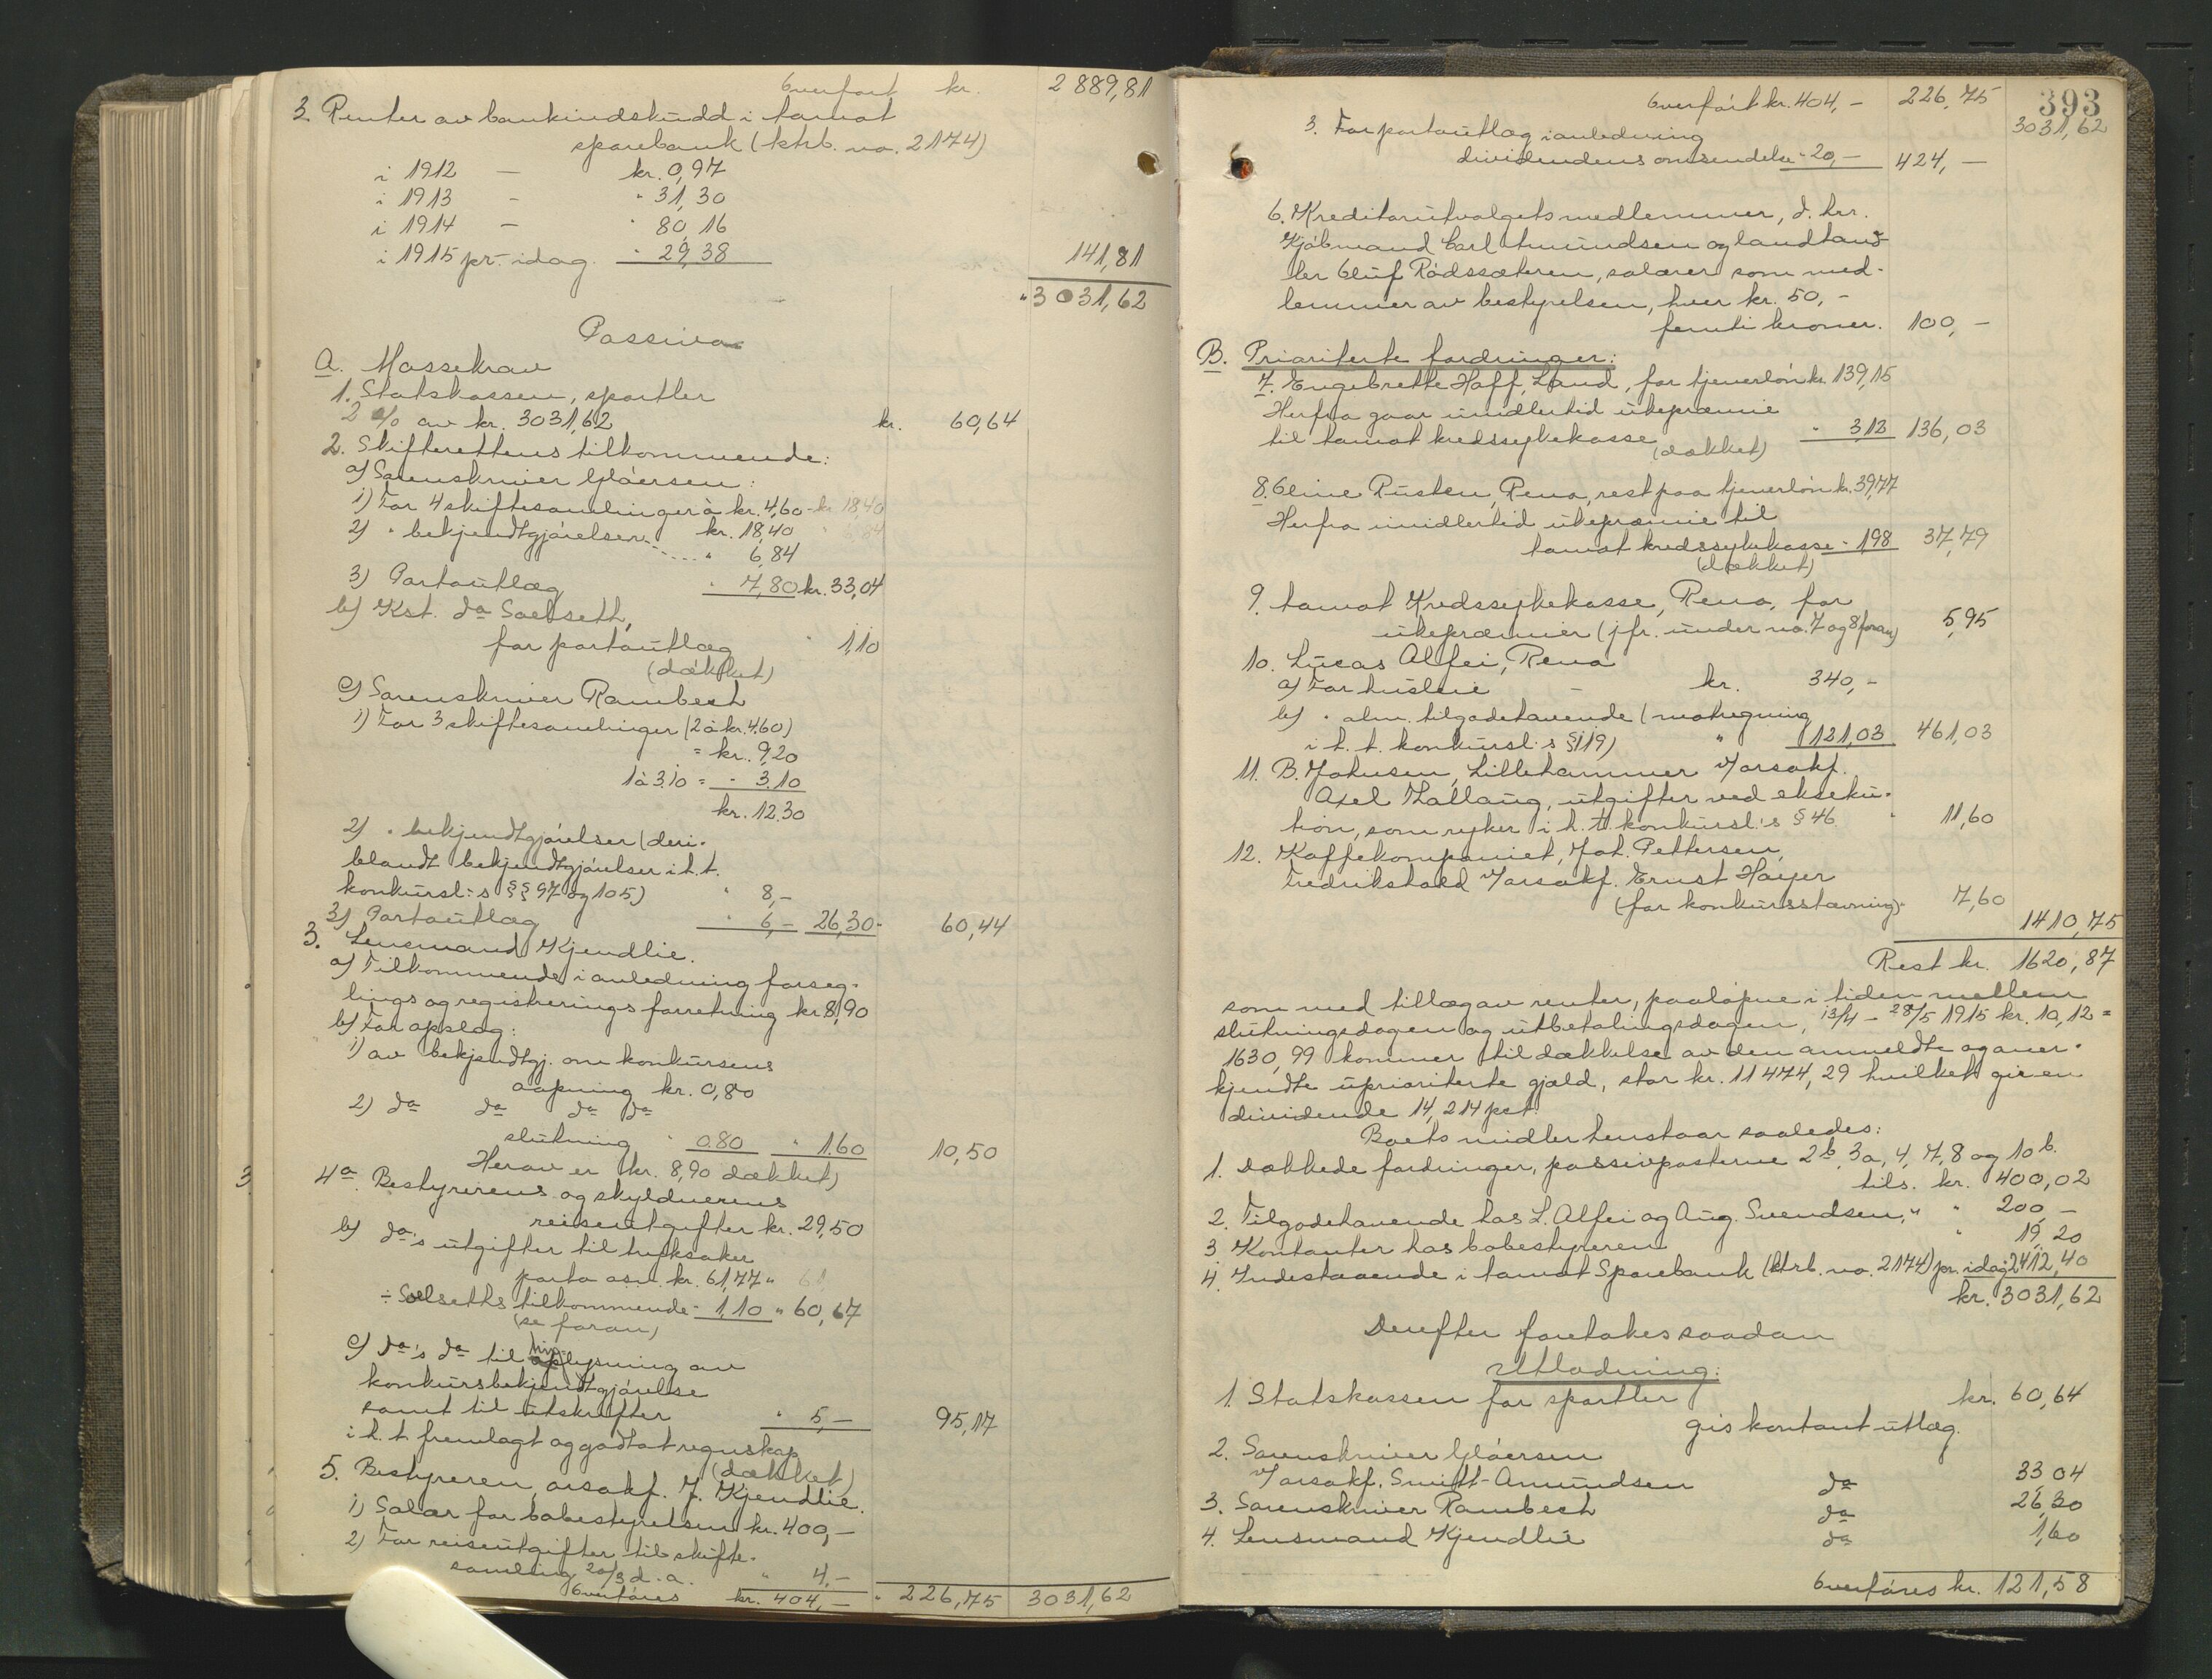 Overført kr. 2 889,81
3. Renter av bankindskudd i Aamot
sparebank (ktrb. no. 2174)
i 1912 — kr. 0,97
i 1913 - " 31,30
i 1914 - " 80,16
i 1915 pr. idag. " 29,38 141,81
" 3031,62
Passiva
A. Massekrav
1. Statskassen, sportler
2 % av kr. 3031,62 kr. 60,64
2. Skifterettens tilkommende:
a) Sorenskriver Gløersen:
1) For 4 skiftesamlinger à kr. 4,60 - kr. 18,40
2) " bekjendtgjørelser kr. 18,40 " 6,84
..... " 6,84
3) Portoutlæg " 7,80 kr. 33,04
b) Kst. do Sælseth,
for portoutlæg " 1,10
(dækket)
c) Sorenskriver Rambech
1) For 3 skiftesamlinger (2 à kr. 4.60)
= kr. 9,20
1 à 3.10 = " 3.10
kr. 12.30
2) " bekjendtgjørelser (deri-
blandt bekjendtgjørelser i h. t.
konkursl.s §§ 97 og 105) " 8,-
3) Portoutlæg " 6,- 26,30 60,44
3. Lensmand Kjendlie.
a) Tilkommende i anledning forseg-
lings og registrerings forretning kr. 8,90
b) For opslag:
1) av bekjendtgj. om konkursens
aapning kr. 0,80
2) do do do do
slutning " 0.80 " 1.60 10,50
Herav er kr. 8,90 dækket)
3 4a. Bestyrerens og skyldnerens
reiseutgifter kr. 29,50
b) do's utgifter til tryksaker
porto osv. kr. 61,77 "
÷ Sælseths tilkommende - 1,10 " 60,67
(se foran)
c) do's do til lysning av
konkursbekjendtgjørelse
samt til utskrifter " 5,— 95,17
i h. t. fremlagt og godtat regnskap
(dækket)
5. Bestyreren, orsakf. J. Kjendlie.
1) Salær for bobestyrelsen kr. 400,—
2) For reiseutgifter til skifte-
samling 20/3 d. a. " 4.—
Overføres kr. 404,— " 226,75 3031,62
393
Overført kr. 404,- 226,75 3031,62
3. For portoutlæg i anledning
dividendens omsendelse " 20,— 424,—
6. Kreditorutvalgets medlemmer, d. hrr.
Kjøbmand Carl Amundsen og landhand-
ler Oluf Rødssæteren, salærer som med-
lemmer av bestyrelsen, hver kr. 50,-
femti kroner. 100,—
B. Prioriterte fordringer:
7. Engebrette Haff, Land, for tjenerløn kr. 139,15
Herfra gaar imidlertid ukepræmie
til Aamot kredssykekasse " 3,12 136,03
(dækket)
8. Oline Rusten, Rena, rest paa tjenerløn kr. 39,77
Herfra imidlertid ukepræmie til
Aamot kredssykekasse " 1,98 37,79
(dækket)
9. Aamot Kredssykekasse, Rena, for
ukepræmier (jfr. under no. 7 og 8 foran) 5,95
10. Lucas Alfei, Rena
a) For husleie - kr. 340,-
b) " alm. tilgodehavende (motregning
i h. t. konkursl.s § 119) " 121,03 461,03
11. B. Johnsen, Lillehammer v/orsakf.
Axel Hallaug, utgifter ved ekseku-
tion, som ryker i h. t. konkursl.s § 46 " 11,60
12. Kaffekompaniet, Joh. Pettersen,
Fredrikstad v/orsakf. Ernst Høyer
(for konkursstævning) " 7,60
1410,75
Rest kr. 1620,87
som med tillæg av renter, paaløpne i tiden mellem
slutningsdagen og utbetalingsdagen, 13/4 - 28/5 1915 kr. 10,12 =
1630,99 kommer til dækkelse av den anmeldte og aner-
kjendte uprioriterte gjæld, stor kr. 11474,29 hvilket gir en
dividende 14,214 pct.
Boets midler henstaar saaledes:
1. Dækkede fordringer, passivposterne 2b, 3a, 4, 7, 8 og 10b.
tils. kr. 400,02
2. Tilgodehavende hos L. Alfei og Aug. Svendsen, " " 200,—
3 Kontanter hos bobestyreren " 19,20
4. Indestaaende i Aamot Sparebank (ktrb. no. 2174) pr. idag " 2412,40
kr. 3031,62
Derefter foretokes saadan
Utlodning:
1. Statskassen for sportler kr. 60,64
gis kontant utlæg.
2. Sorenskriver Gløersen
v/orsakf. Smitt-Amundsen do 33,04
3. Sorenskriver Rambech do 26,30
4. Lensmand Kjendlie do 1,60
Overføres kr. 121,58